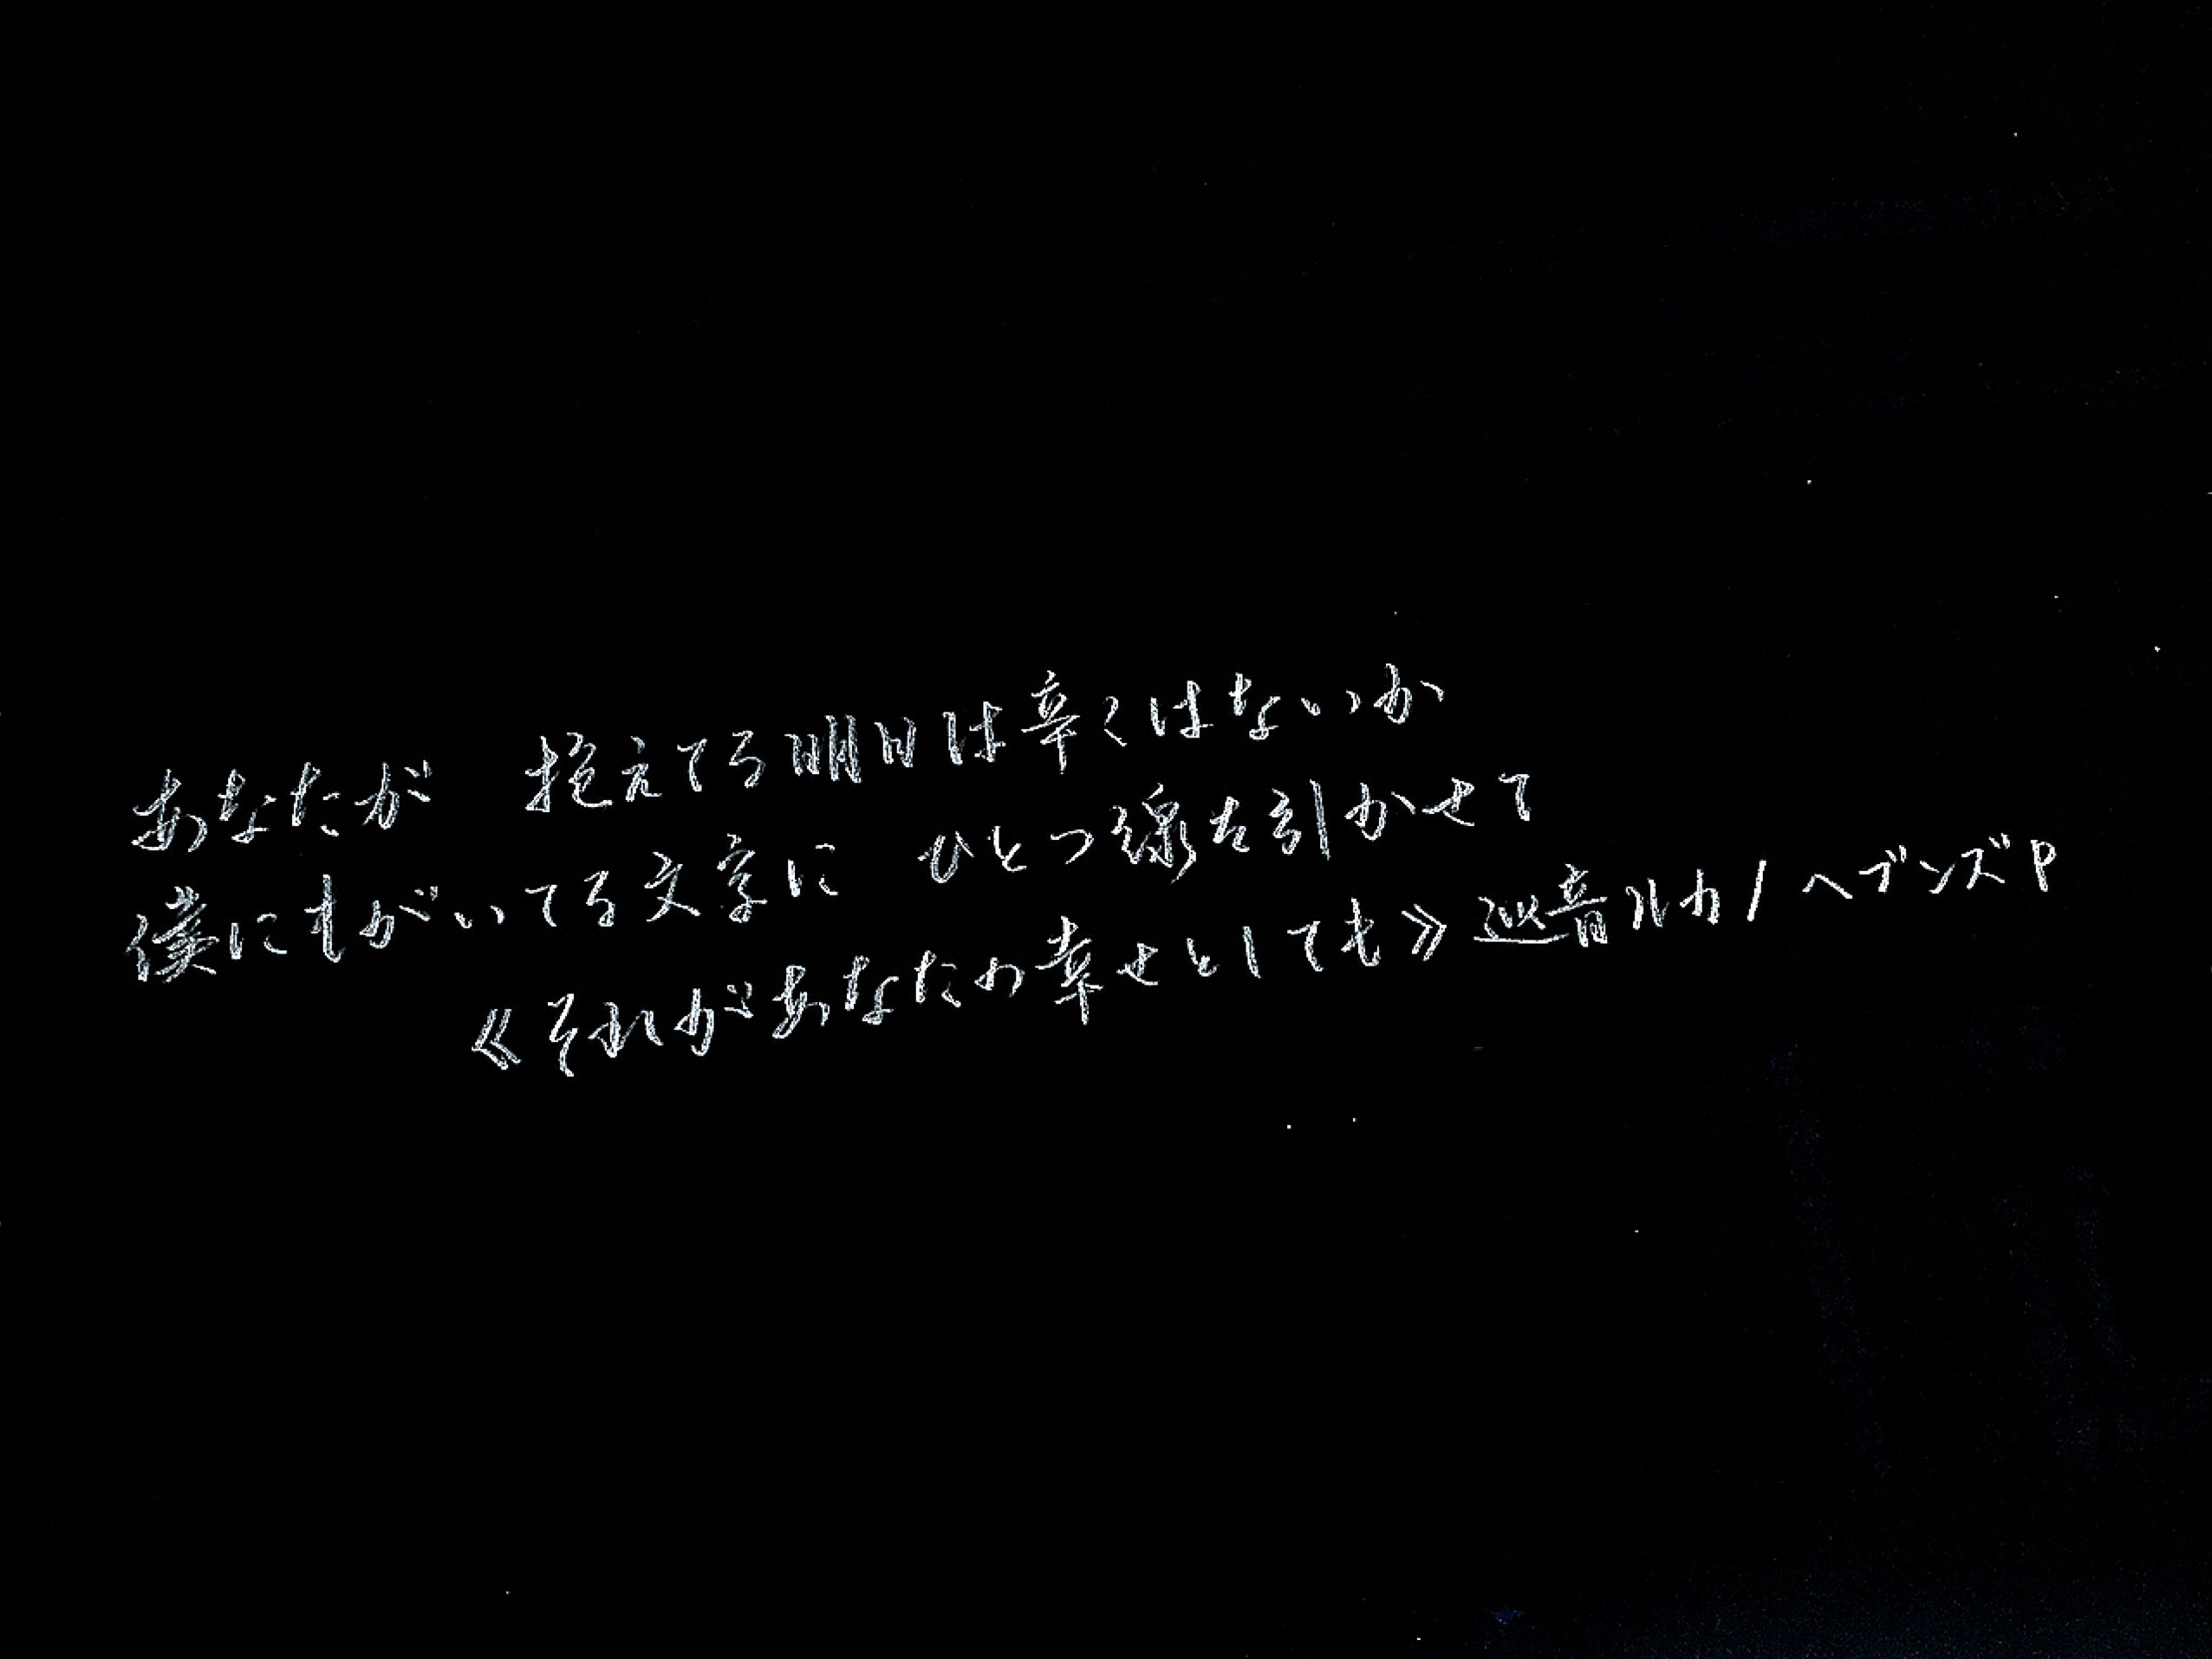 あなたが 抱えてる明日は辛くはないか
僕にもがいてる文字に ひとつ線を引かせて
《それがあなたの幸せとしても》巡音ルカ/ヘブンズP